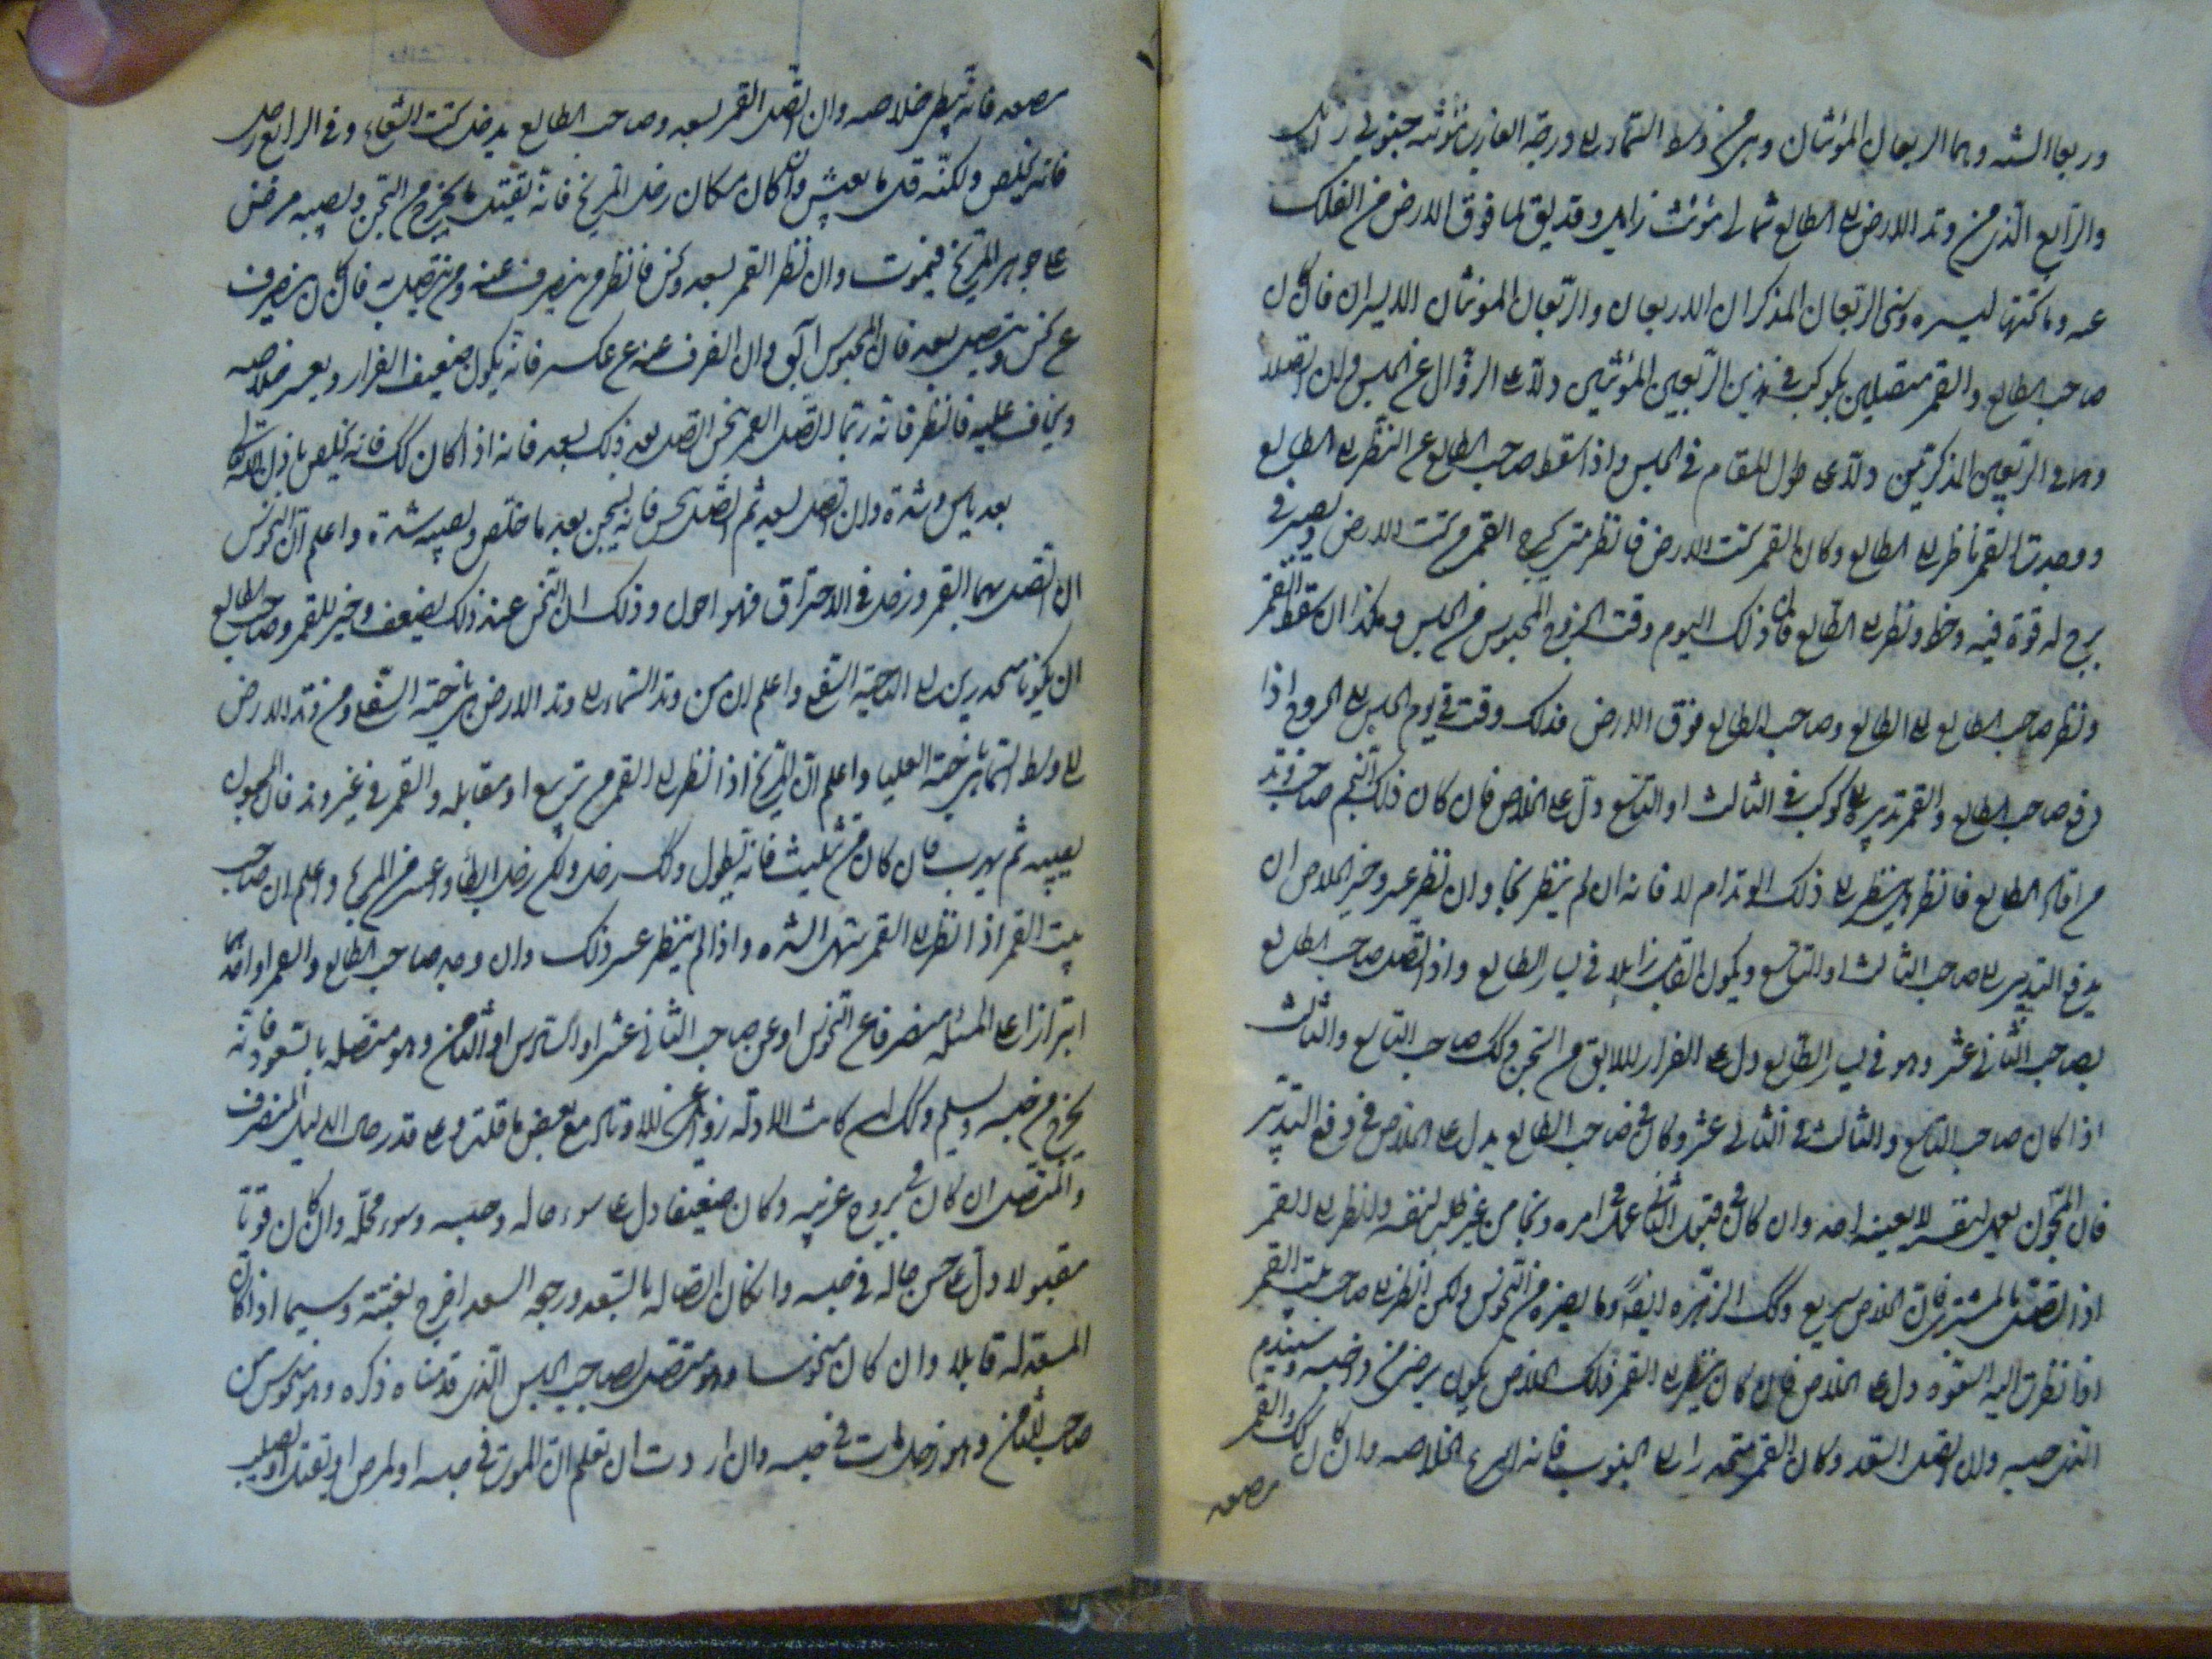 وربعا الشدة وهما الربعان المؤنثان وهي من وسط السماء الى درجة الغارب مؤنثة جنوبي زايل
والرابع الذي من وتد الارض الى الطالع شمالي مؤنث زايل وقد يقال لما فوق الارض من الفلك
يمنه وما تحتها ليسره وسمى الربعان المذكران الاربعان والربعان المؤنثان الايسران فان كان
صاحب الطالع والقمر متصلين بكوكب في هذين الربعين المؤنثين دلا على الزوال عن الحبس وان اتصلا
وهما في الربعين المذكرين دلا على طول المقام في الحبس واذا سقط صاحب الطالع عن النظر الى الطالع
ووجدت القمر ناظر الى الطالع وكان القمر تحت الارض فانظر متى يخرج القمر من تحت الارض ويصير في
برج له قوة فيه وحظ ونظر الى الطالع فان ذلك اليوم وقت الخروج المحبوس من الحبس وهكذا ان سقط القمر
ونظر صاحب الطالع الى الطالع وصاحب الطالع فوق الارض فذلك وقت في يوم الحبس الى الخروج اذا
دفع صاحب الطالع والقمر تدبيره الى كوكب في الثالث او التاسع دل على الخلاص فان كان ذلك النجم صاحب وتد
من اوتاد الطالع فانظر هل ينظر الى ذلك الوتد ام لا فانه ان لم ينظر نجا وان نظر عسر وخير الخلاص ان
يدفع التدبير الى صاحب الثالث او التاسع ويكون القابل زايلا في يسار الطالع واذا اتصل صاحب الطالع
بصاحب الثاني عشر وهو في يسار الطالع دل على الفرار للابق من السجن وكك صاحب التاسع والثالث
اذا كان صاحب التاسع والثالث في الثاني عشر وكان في صاحب الطالع يدل على الخلاص في دفع التدبير
فان المسجون يعمل لنفسه لا يعينه احد وان كان في قبل الثاني عمل في امره ونجا من غير طلب لنفسه وانظر الى القمر
اذا اتصل بالمشتري فان الخلاص سريع وكك الزهرة ايضا وما يضره من النحوس ولكن انظر الى صاحب بيت القمر
اذا نظرت اليه السعود دل على الخلاص فان كان ينظر الى القمر فذلك الخلاص يكون برضى من ذو حبسه وسيندم
الذي حبسه وان اتصل السعد وكان القمر منحدرا الى الجنوب فانه اسرع لخلاصه وان كان كك والقمر
مصعد
مصعد فانه يبطى خلاصه وان اتصل القمر بسعد وصاحب الطالع يدخل تحت الشعاع وفي الرابع زحل
فانه يخلص ولكنه قل ما يعيش وان كان مكان زحل المريخ فانه يقتل او يخرج من السجن ويصيبه مرض
على جوهر المريخ فيموت وان نظر القمر بسعد ونحس فانظر من ينصرف عنه ومن يتصل به فان كان ينصرف
عن نحس ويتصل بسعد فان المحبوس آبق وان انصرف عنه عن عكسه فانه يكون ضعيف الفرار ويعسر خلاصه
ويخاف عليه فانظر فانه ربما اتصل القمر بنحس اتصل بعد ذلك بسعد فانه اذا كان كك فانه يخلص باذن الله تعالى
بعد ياس وشدة وان اتصل بسعد ثم اتصل بنحس فانه يسجن بعد ما خلص ويصيبه شدة واعلم ان النحوس
ان اتصل بهما القمر وزحل في الاحتراق فهو احول وذلك ان النحس عند ذلك يضعف وخير للقمر وصاحب الطالع
ان يكونا منحدرين الى الناحية السفلى واعلم ان من وتد السماء الى وتد الارض ناحيته السفلى ومن وتد الارض
الى وسط السماء ناحيته العليا واعلم ان المريخ اذا نظر الى القمر من تربيع او مقابله والقمر في غير وتد فان المحبوس
يصيبه ثم يهرب فان كان من تثليث فانه يطول وكك زحل ولكن زحل ابطاء واعسر من المريخ واعلم ان صاحب
بيت القمر اذا نظر الى القمر سهل الشدة واذا لم ينظر عسر ذلك وان وجد صاحب الطالع والقمر او احدهما
ابتزازا على المسئلة منصرفا عن النحوس او عن صاحب الثاني عشر او السادس او الثامن وهو متصله بالسعود فانه
يخرج من حبسه ويسلم وكك ان كانت الادلة زوايل عن الاوتاد مع بعض ما قلت وعلى قدر حال الدليل المنصرف
والمتصل ان كان في بروج غريبه وكان ضعيفا دل على سوء حاله وحبسه وسوء محله وان كان قويا
مقبولا دل على حسن حاله في حبسه وان كان اتصاله بالسعد ورجعة السعد اخرج بغتة وسيما اذا كان
السعد له قابلا وان كان منحوسا وهو متصل بصاحب الحبس الذي قدمناه ذكره وهو منحوس من
صاحب الثامن وهو زحل مات في حبسه وان اردت ان تعلم ان الموت في حبسه او لمرض او يقتل او يصلب